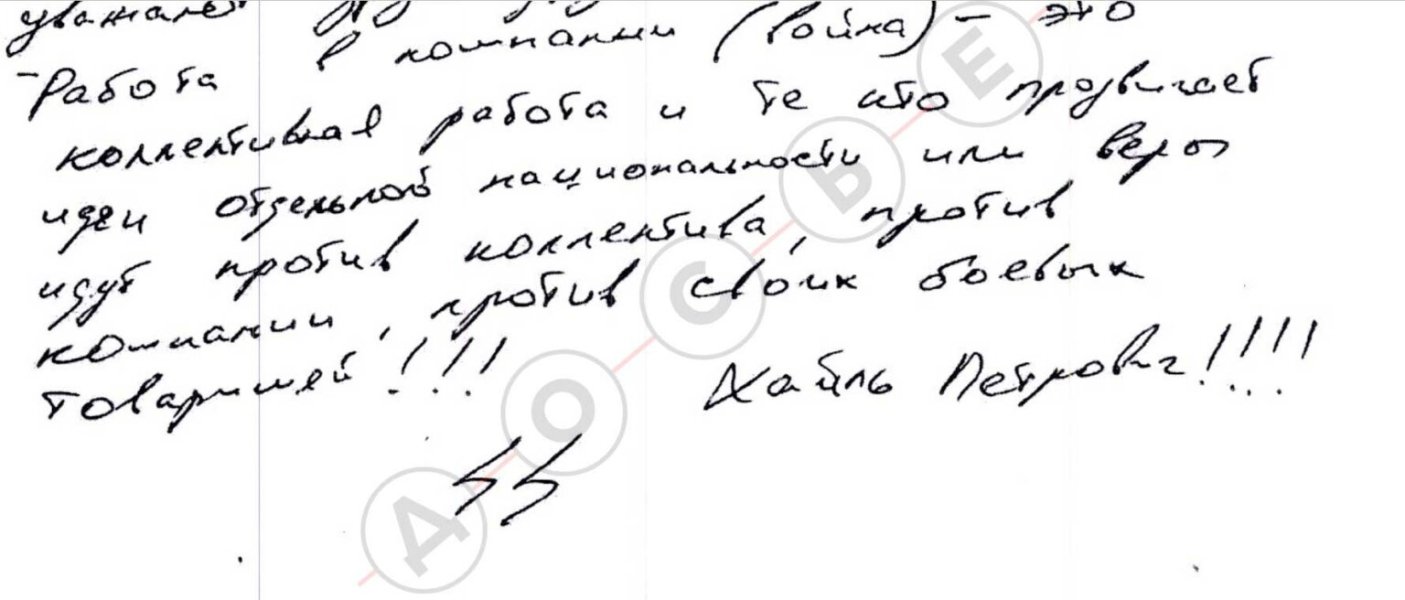 уважале
- Работа в компании (война) - это
коллективная работа и те кто продвигает
идеи отдельной национальности или веры
идут против коллектива, против
компании, против своих боевых
товарищей!!!
Хайль Петрович!!!!
ϟϟ
ДОСЬЕ